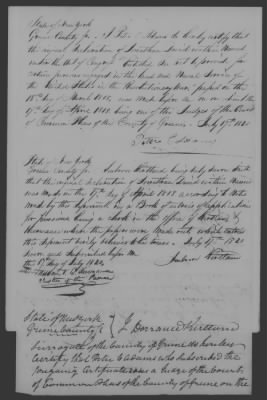 State of New York
Greene County ss. I Peter C Adams do hereby certify that
the original Declaration of Jonathan within named
under the Act of Congress Entitled An act to provide for
certain persons engaged in the land and Naval Service of
the United States in the Revolutionary War, passed on the
18th day of March 1818, was made before me on or about the
17th day of April 1818 being one of the Judges of the Court
of Common Pleas of the County of Greene. July 17th 1820
Peter C Adams
State of New York
Greene County ss. Kirtland being duly sworn saith
that the original declaration of Jonathan within named
was made on the 17th of April 1818 according to
by this deponent in a Book of entries of Applications
for pensions being a clerk in the office of
the papers were made out which entries
this deponent verily believes to be true. July 17th 1820
Sworn and subscribed before me
the 17 day of July 1820
Justice of the Peace
Kirtland
State of New York
Greene County ss I Dorrance Kirtland
Surrogate of the County of Greene do hereby
Certify that Peter C Adams who subscribed the
foregoing Certificate was a Judge of the Courts
of Common Pleas of the County of Greene on the